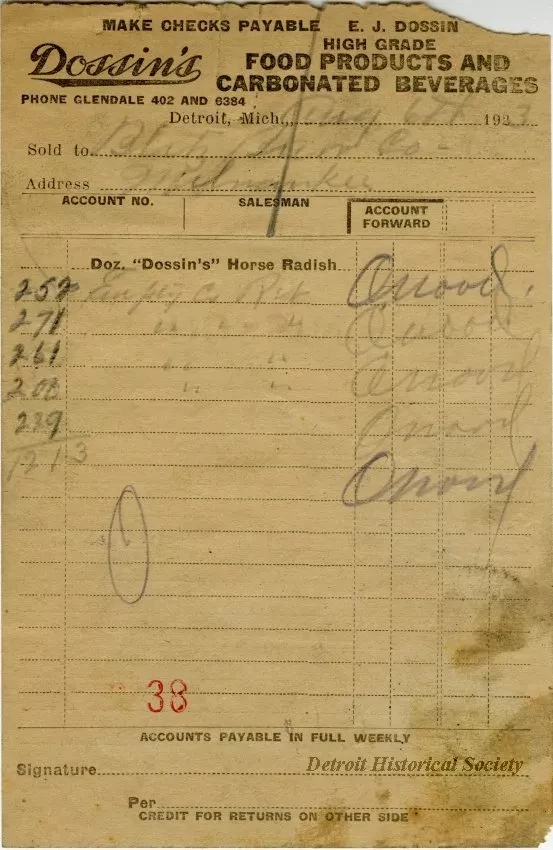 MAKE CHECKS PAYABLE E. J. DOSSIN
Dossin's
HIGH GRADE
FOOD PRODUCTS AND
CARBONATED BEVERAGES
PHONE GLENDALE 402 AND 6384
Detroit, Mich., 192
Sold to Co
Address Milwaukee
ACCOUNT NO. SALESMAN ACCOUNT FORWARD
Doz. "Dossin's" Horse Radish
252 Empty
271 " "
261 " "
208 " "
239
1213
38
ACCOUNTS PAYABLE IN FULL WEEKLY
Signature
Detroit Historical Society
Per
CREDIT FOR RETURNS ON OTHER SIDE